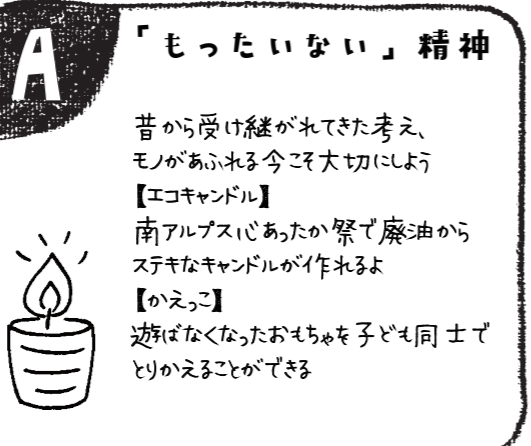 A
「もったいない」精神
昔から受け継がれてきた考え、
モノがあふれる今こそ大切にしよう
【エコキャンドル】
南アルプス心あったか祭で廃油から
ステキなキャンドルが作れるよ
【かえっこ】
遊ばなくなったおもちゃを子ども同士で
とりかえることができる